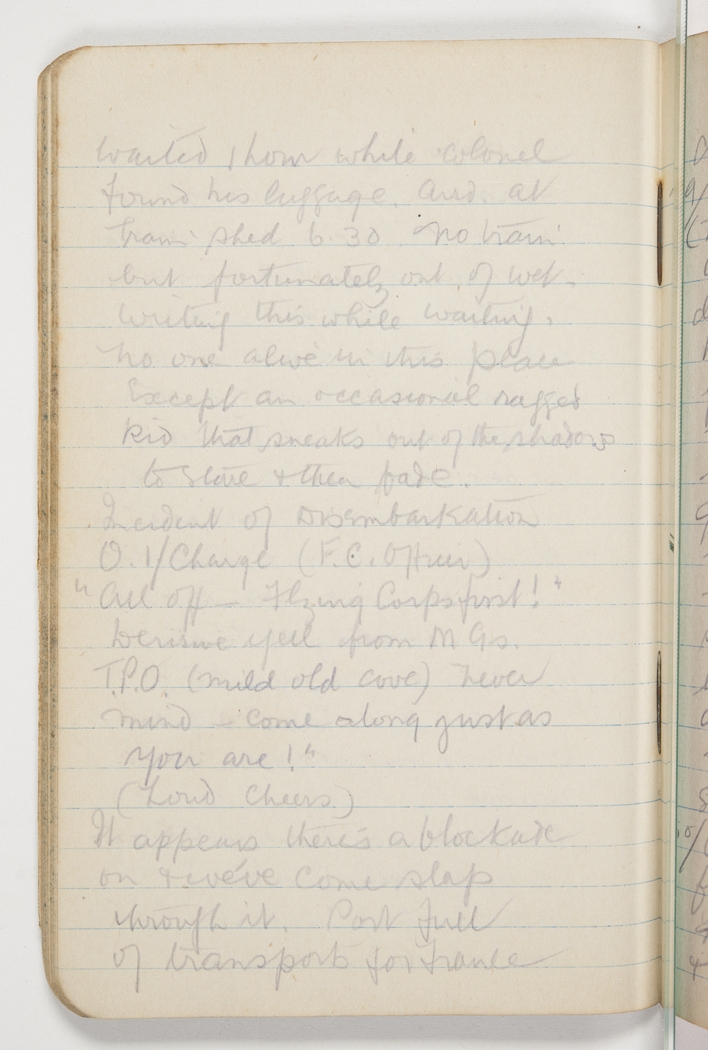 waited 1 hour while colonel
found his luggage. Arrd. at
train shed 6.30 no train
but fortunately out of wet.
Writing this while waiting.
No one alive in this place
Except an occasional ragged
kid that sneaks out of the shadows
to stare & then fade.
Incident of Disembarkation
O. I/Charge (F.C. Officer)
"All off — Flying Corps first!"
Derisive yell from M Gs.
T.P.O. (mild old cove) Never
mind — come along just as
you are!"
(Loud Cheers)
It appears there's a blockade
on & we've come slap
through it. Port full
of transports for France